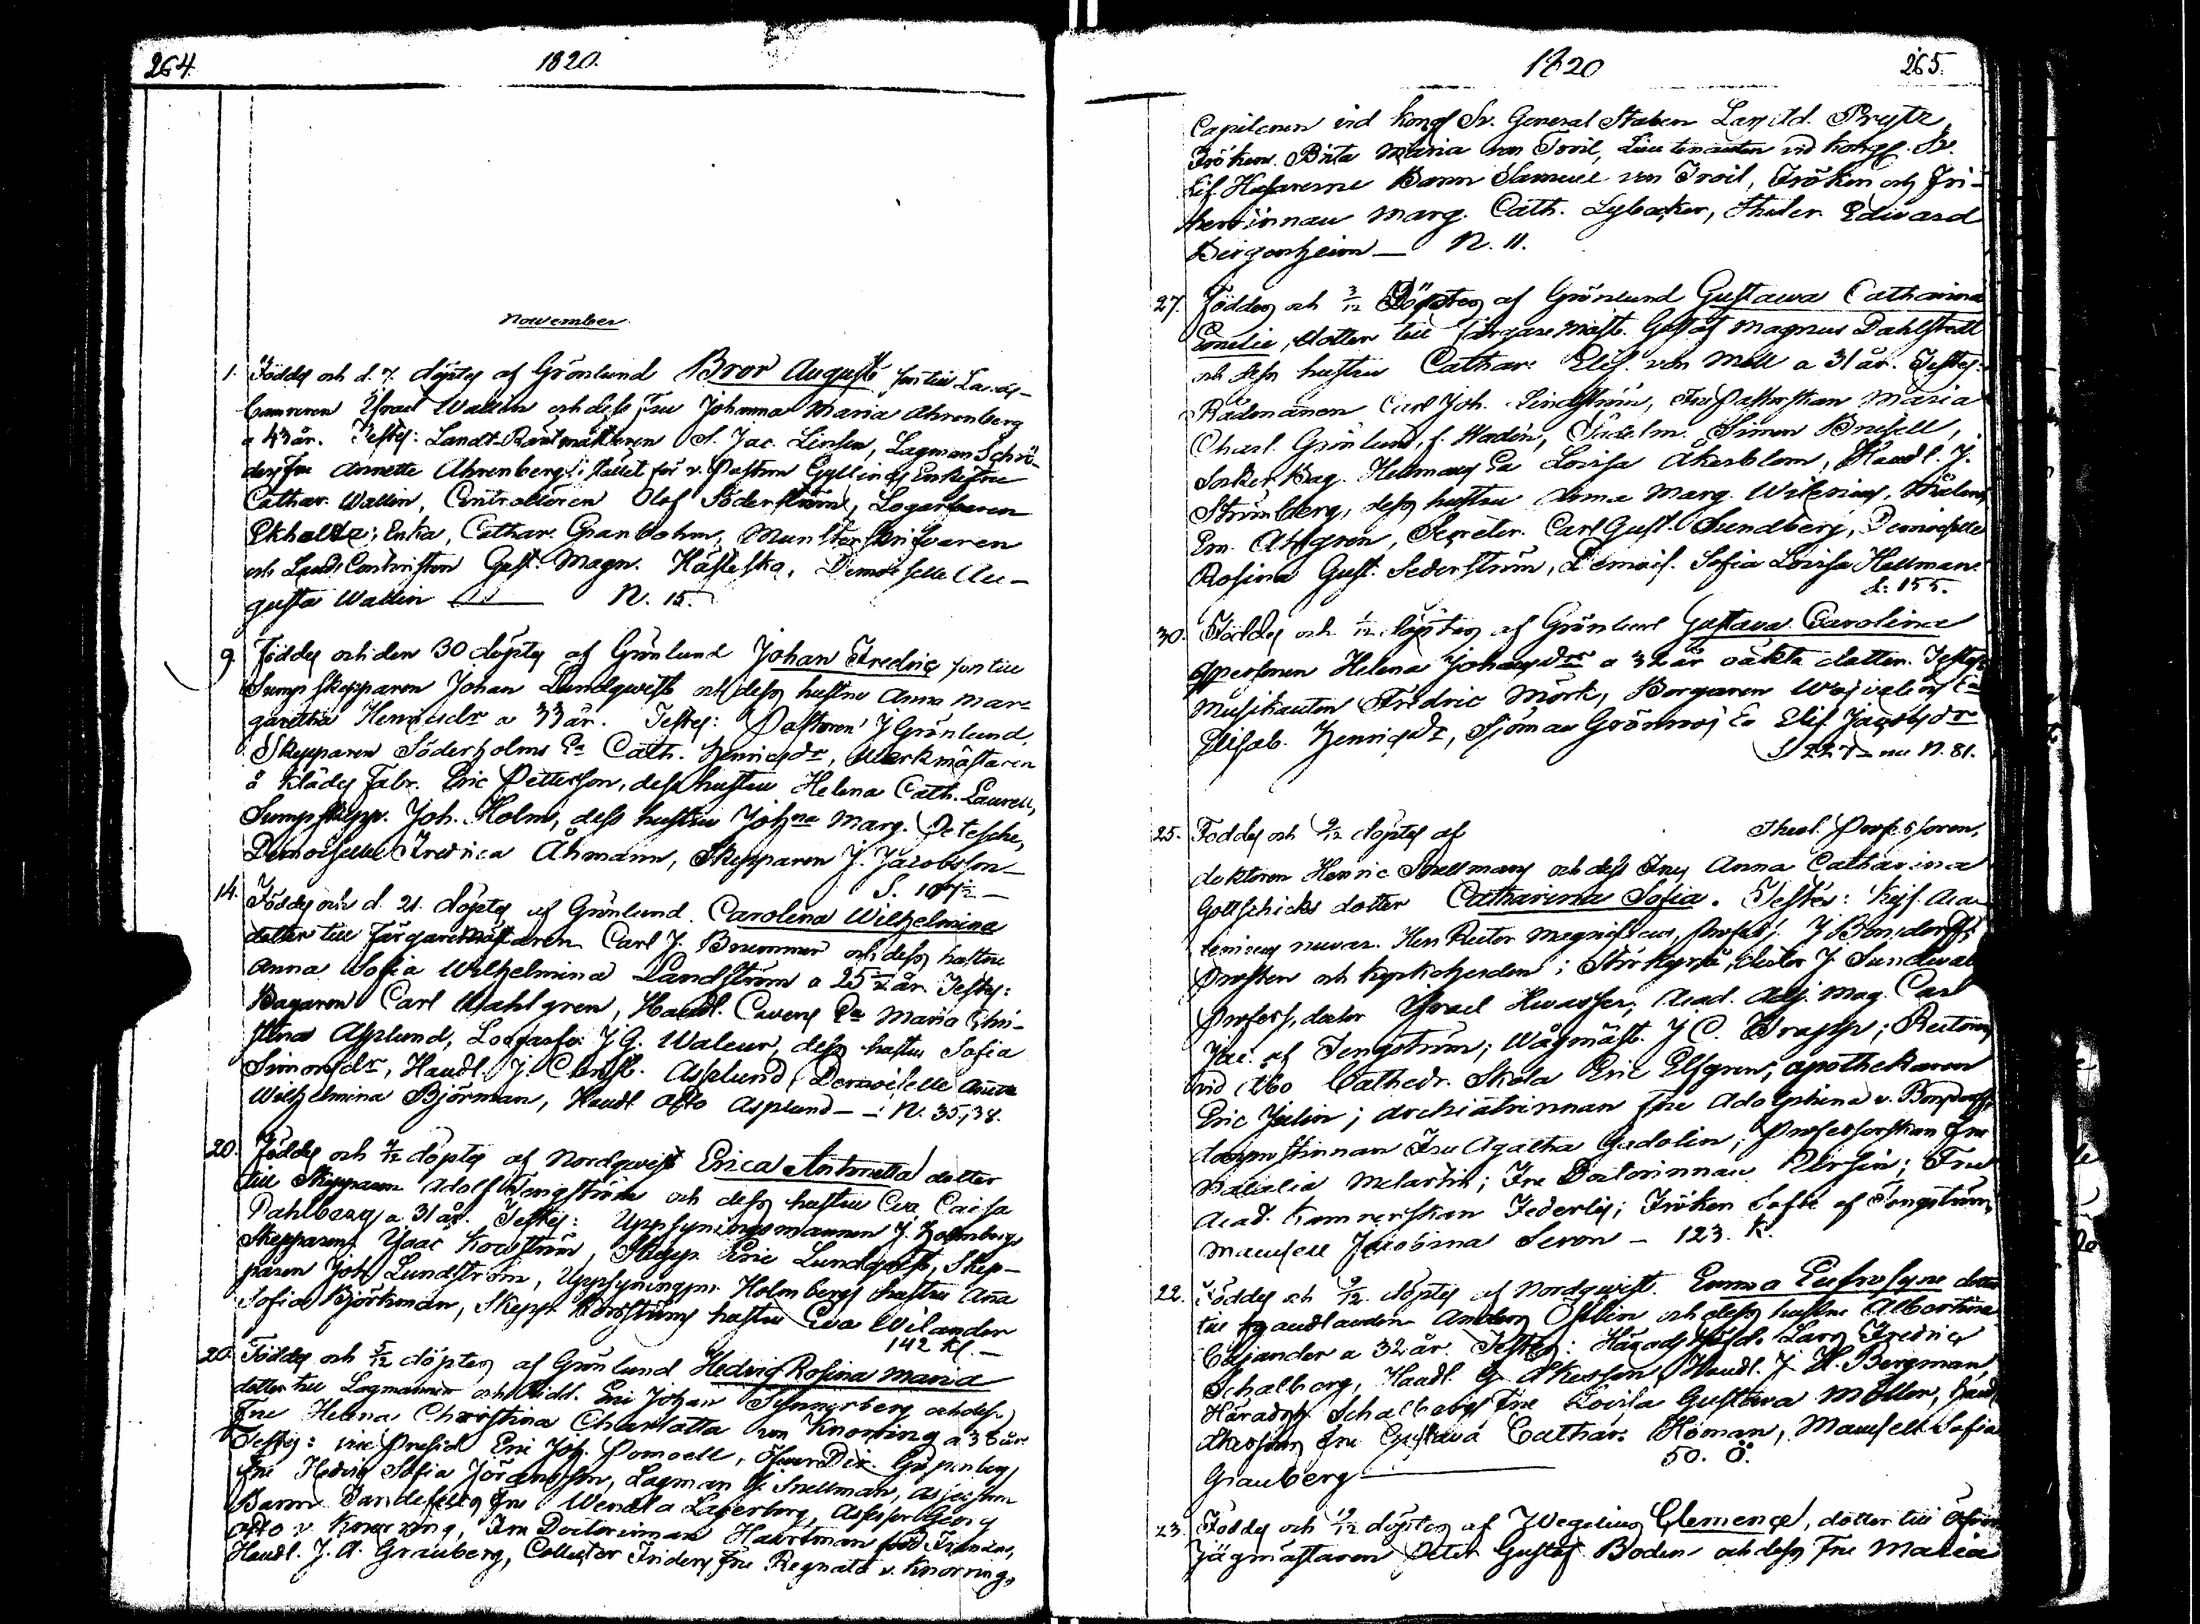 264. 1820.
November.
1. Föddes och d. 7. döptes af Grönlund Bror August son till Lands-
Camreren Israel Wallin och dess Fru Johanna Maria Ahrenberg
a 43 år. Testes: Landt-Räntmästaren S. Jac. Linsén, Lagman Schrö-
ders Fru Annette Ahrenberg i stället för v. Pastorn Gyllings Enkefru
Cathar. Wallin, Controlleuren Olof Söderström, Logarfwaren
Ekholtz; Enka, Cathar. Granbohm, Munsterskrifvaren
och Lands Contoristen Gust. Magn. Hästesko, Demoiselle Au-
gusta Wallin — N. 15.
9. Föddes och den 30 döptes af Grönlund Johan Fredric son till
Sumpskepparen Johan Lundqwist och dess hustru Anna Mar-
garetha Henricsdr a 33 år. Testes: Pastoren J Grönlund,
Skepparen Söderholms Ea Cath. Henricsdr, Werkmästaren
å Klädes Fabr. Eric Petterson, dess hustru Helena Cath. Laurell,
Sumpskepp. Joh. Holm, dess hustru Johna Marg. Petesche,
Demoiselle Fredrica Åhmann, Skepparen J. Jacobsson —
S. 107½ —
14. Föddes och d. 21. döptes af Grönlund. Carolina Wilhelmina
dotter till Färgaremästaren Carl J. Brummer och dess hustru
Anna Sofia Wilhelmina Landström a 25½ år. Testes:
Bagaren Carl Wahlgren, Handl. Cavens Ea Maria Chri-
stina Asplund, Logarfv: J G. Waleur, dess hustru Sofia
Simonsdr, Handl. J. Christ. Asplund, Demoiselle Anna
Wilhelmina Björman, Handl. Otto Asplund — N. 35, 38.
20. Föddes och 4/12 döptes af Nordqwist Erica Antonetta dotter
till Skepparen Adolf Tengström och dess hustru Eva Caisa
Dahlberg a 31 år. Testes: Uppsyningsmannen J. Holmberg,
Skepparen Isaac Korsström, Skepp. Eric Lundqvist, Skep-
paren Joh Lundström, Uppsyningsm. Holmbergs hustru Anna
Sofia Björkman, Skepp. Korsströms hustru Eva Wilander
142 Kl. —
20. Föddes och 5/12 döptes af Grönlund Hedvig Rosina Maria
dotter till Lagmannen och Ridd. Eric Johan Synnerberg och dess
Fru Helena Christina Charlotta von Knorring a 38 år.
Testes: vice Presid Eric Joh. Pomoell, Öfwer Dir. Gripenberg
Fru Hedvig Sofia Jörgensson, Lagman G. Snellman, Assessorn
Baron Fru Wendla Lagerborg, Assessor Georg
Otto v. Knorring, Fru Doctorinnan Haartman född Franzen,
Handl. J. A. Grauberg, Collector Friders Fru Regnata v. Knorring,
1820 265.
Capitenen vid Kongl Sv. General Staben Prytz,
Fröken Brita Maria von Troil, Lieutenanten vid Kongl. Sv.
Lif Husarerne Baron Samuel von Troil, Fröken och Fri-
herrinnan Marg. Cath. Lybecker, Studer. Edward
Bergenheim — N. 11.
27. Föddes och 3/12 Döptes af Grönlund Gustawa Catharina
Emelie, dotter till Färgare Mäst. Gustaf Magnus Dahlstedt
och dess hustru Cathar. Elis. von Mell a 31 år. Testes:
Rådmannen Carl Joh. Lindström, Fru Pastorskan Maria
Charl. Grönlund, f. Hadén, Sadelm. Simon Brusell,
Socker Bag. Hellmans Ea Lovisa Åkerblom, Handl. J.
Strömberg, dess hustru Anna Marg. Witenius, Målaren
Em. Ahlgren, Secreter. Carl Gust. Sundberg, Demoiselle
Rosina Gust. Sederström, Demois. Sofia Lovisa Hallman.
S. 155.
30. Föddes och 1/12 döptes af Grönlund Gustava Carolina
qpersonen Helena Johansdr a 32 år oäkta dotter. Testes:
Musikanten Fredric Mörk, Borgaren Ea
Elisab. Henricsdr, Sjöman Grönroos Ea Elis. Jacobsdr
S 227 — nu N. 81.
25. Föddes och 9/12 döptes af Theol. Professoren,
doktoren Henric Snellmans och dess Frus Anna Catharina
Gottschicks dotter Catharina Sofia. Testes: Kejs. Aca-
demiens nuvar. Herr Rector Magnificus, Profess. J Bonsdorff;
Prosten och Kyrkoherden i Storkyrö, doctor J. Sundwall
Profess, doctor Israel Hwasser; Acad. Adj. Mag. Carl
Jac. af Tengström; Wågmäst. J C. Trapp; Rectorn
vid Åbo Cathedr. Skola Eric Elfgren; Apothekaren
Eric Julin; Archiatrinnan Fru Adolphina v. Bonsdorff;
domprostinnan Fru Agatha Gadolin; Professorskan Fru
Natalia Melartin; Fru Doctorinnan Nersén; Fru
Acad. Kamrerskan Federley; Fröken Sofie af Tengström,
Mamsell Jacobina Seron — 123. K.
22. Föddes och 9/12 döptes af Nordqwist. Emma Eufrosyne dotter
till Handlanden Anders Östlin och dess hustru Albertina
Cajander a 32 år. Testes: Häradshöfd. Lars Fredric
Schalberg, Handl. G. Åkesson, Handl. J. H. Bergman,
Häradsh. Schalbergs Fru Lovisa Gustava Möller, Handl.
Åkessons Fru Gustava Cathar. Höman, Mamsell Sofia
Grauberg — 50. Ö.
23. Föddes och 9/12 döptes af J Wegelius Clemence, dotter till Öfver
Jägmästaren Peter Gustaf Boden och dess Fru Maria